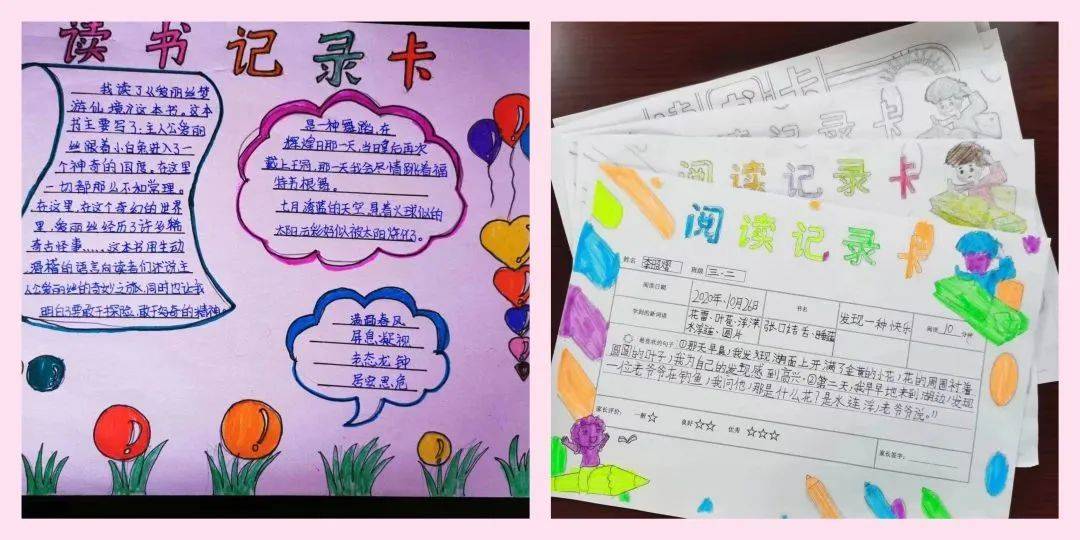 读书记录卡
我读了《爱丽丝梦
游仙境》这本书。这本
书主要写了:主人公爱丽
丝跟着小白兔进入了一
个神奇的国度。在这里
一切都那么不如常理。
在这里,在这个奇幻的世界
里,爱丽丝经历了许多稀
奇古怪事……这本书用生动
滑稽的语言向读者们述说主
人公爱丽丝的奇妙之旅,同时也让我
明白了要敢于探险,敢于好奇的精神
是一种舞蹈,在
辉煌日那一天,当日望后再次
戴上王冠,那一天我会尽情跳着福
特书根舞。
七月湛蓝的天空,悬着火球似的
太阳,云彩好似被太阳烧化了。
满面春风
屏息凝视
老态龙钟
居安思危
阅读记录卡
阅读记录卡
姓名
班级 三.二
阅读日期 2020年、10月26日 书名 发现一种快乐 阅读 10 分钟
学到的新词语 花蕾·叶茎·浮萍 张口结舌·睡莲
水浮莲·圆片
最喜欢的句子 ①那天早晨,我发现湖面上开满了金黄的小花,花的周围衬着
圆圆的叶子,我为自己的发现感到高兴。②第二天,我早早地来到湖边,发现
一位老爷爷在钓鱼,我问他,那是什么花?是水连浮,老爷爷说。
家长评价: 一般☆ 良好☆☆ 优秀 ☆☆☆
家长签字: